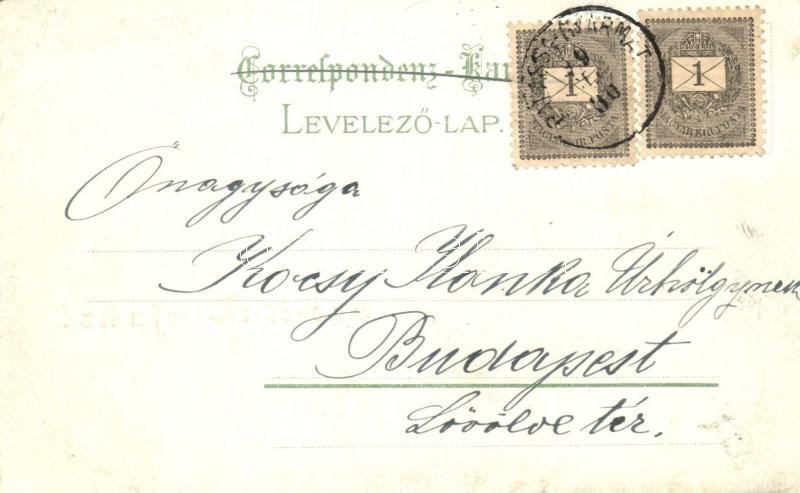 Correspondenz-Kar
LEVELEZŐ-LAP.
1
MAGYAR KIR. POSTA
1
MAGYAR KIR. POSTA
Őnagysága
Kocsy Ilonka Úrhölgynek
Budapest
Lövölde tér.